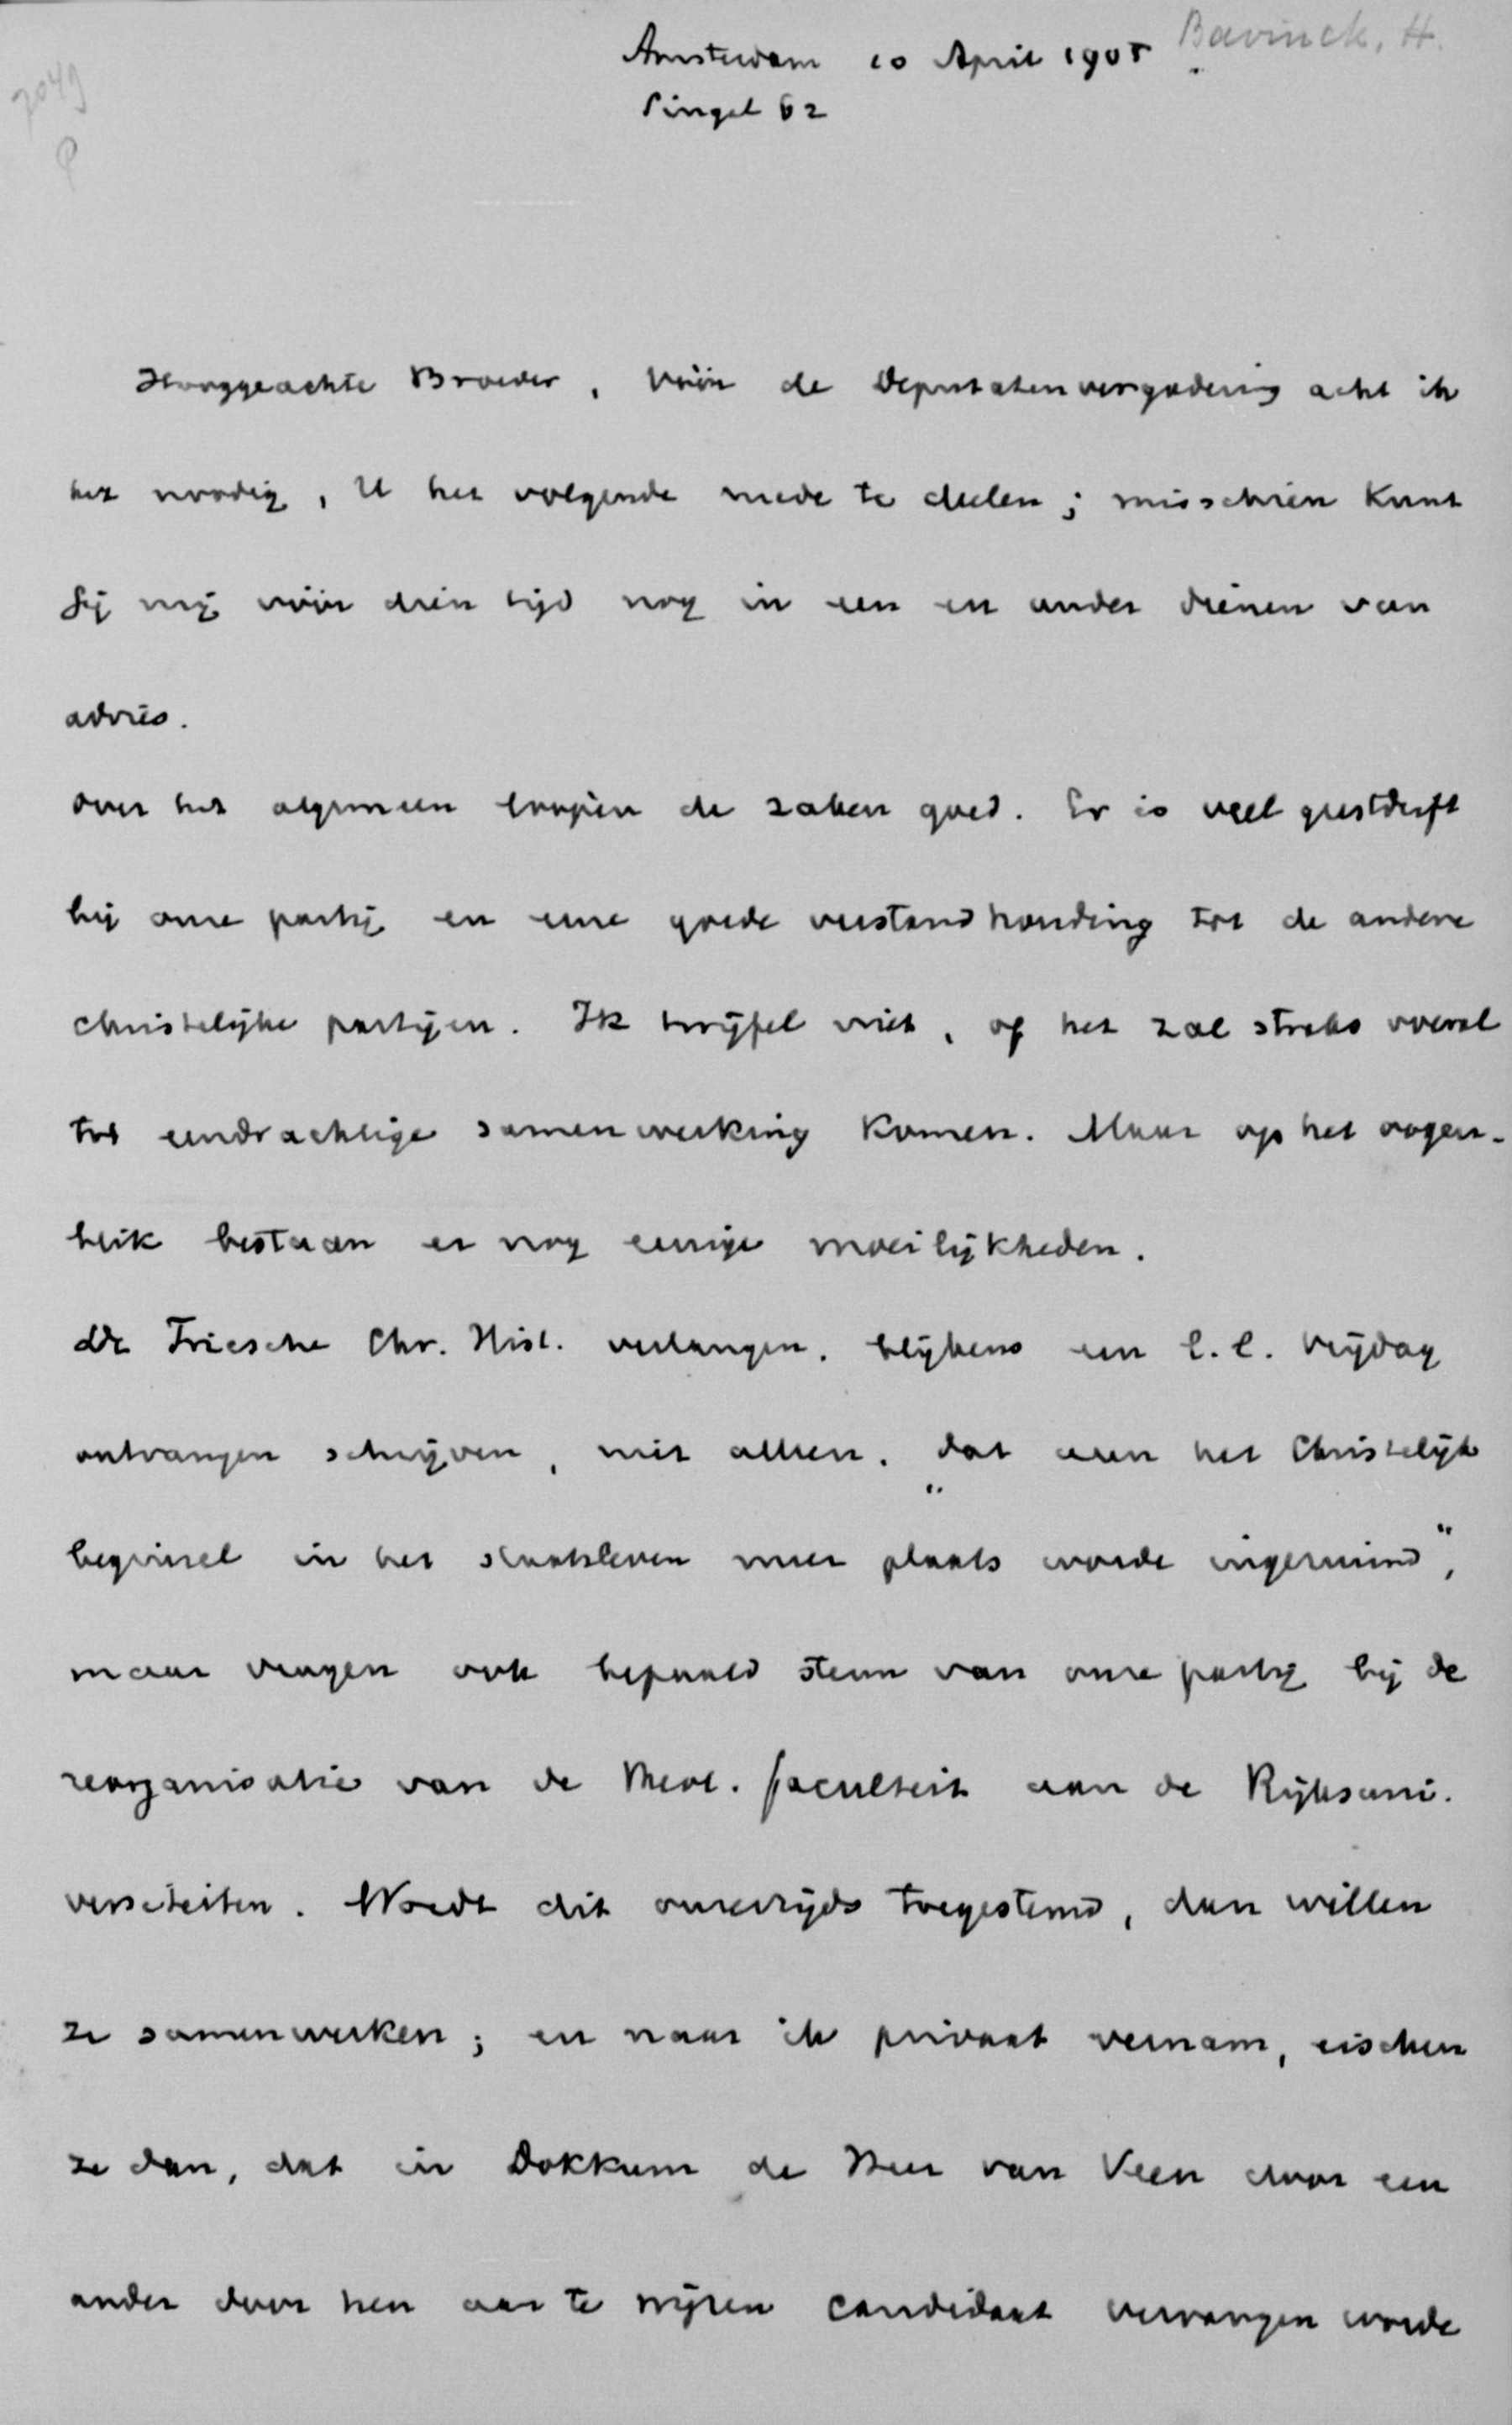 Bavinck, H.
7049
P
Amsterdam 10 April 1905
Singel 62
Hooggeachte Broeder, Vóór de Deputatenvergadering acht ik
het noodig, U het volgende mede te deelen; misschien kunt
Gij mij vóór dien tijd nog in een en ander dienen van
advies.
Over het algemeen loopen de zaken goed. Er is veel geestdrift
bij onze partij en eene goede verstandhouding tot de andere
christelijke partijen. Ik twijfel niet, of het zal straks overal
tot eendrachtige samenwerking komen. Maar op het oogen-
blik bestaan er nog eenige moeilijkheden.
De Friesche Chr. Hist. verlangen, blijkens een l.l. Vrijdag
ontvangen schrijven, niet alleen, „dat aan het Christelijk
beginsel in het staatsleven meer plaats worde ingeruimd",
maar vragen ook bepaald steun van onze partij bij de
reorganisatie van de theol. faculteit aan de Rijksuni-
versiteiten. Wordt dit onzerzijds toegestemd, dan willen
ze samenwerken; en naar ik privaat vernam, eischen
ze dan, dat in Dokkum de Heer van Veen door een
ander door hen aan te wijzen candidaat vervangen worde